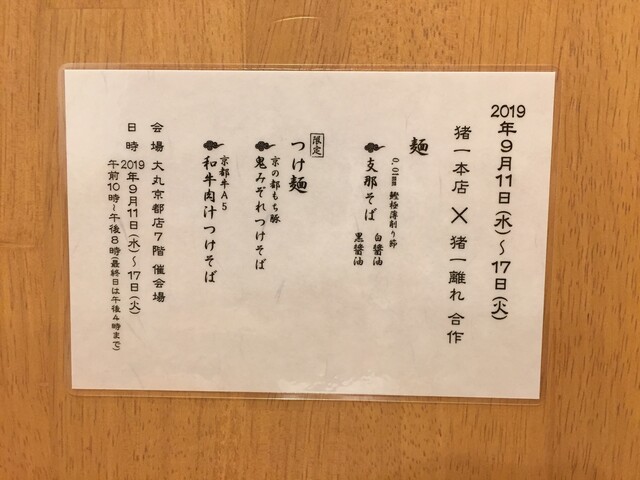 2019年9月11日(水)~17日(火)
猪一本店 × 猪一離れ 合作
麺
0.01㎜ 鰹極薄削り節
支那そば 白醤油
黒醤油
限定
つけ麺
京の都もち豚
鬼みぞれつけそば
京都牛A5
和牛肉汁つけそば
会場 大丸京都店7階 催会場
日時 2019年9月11日(水)~17日(火)
午前10時~午後8時(最終日は午後4時まで)